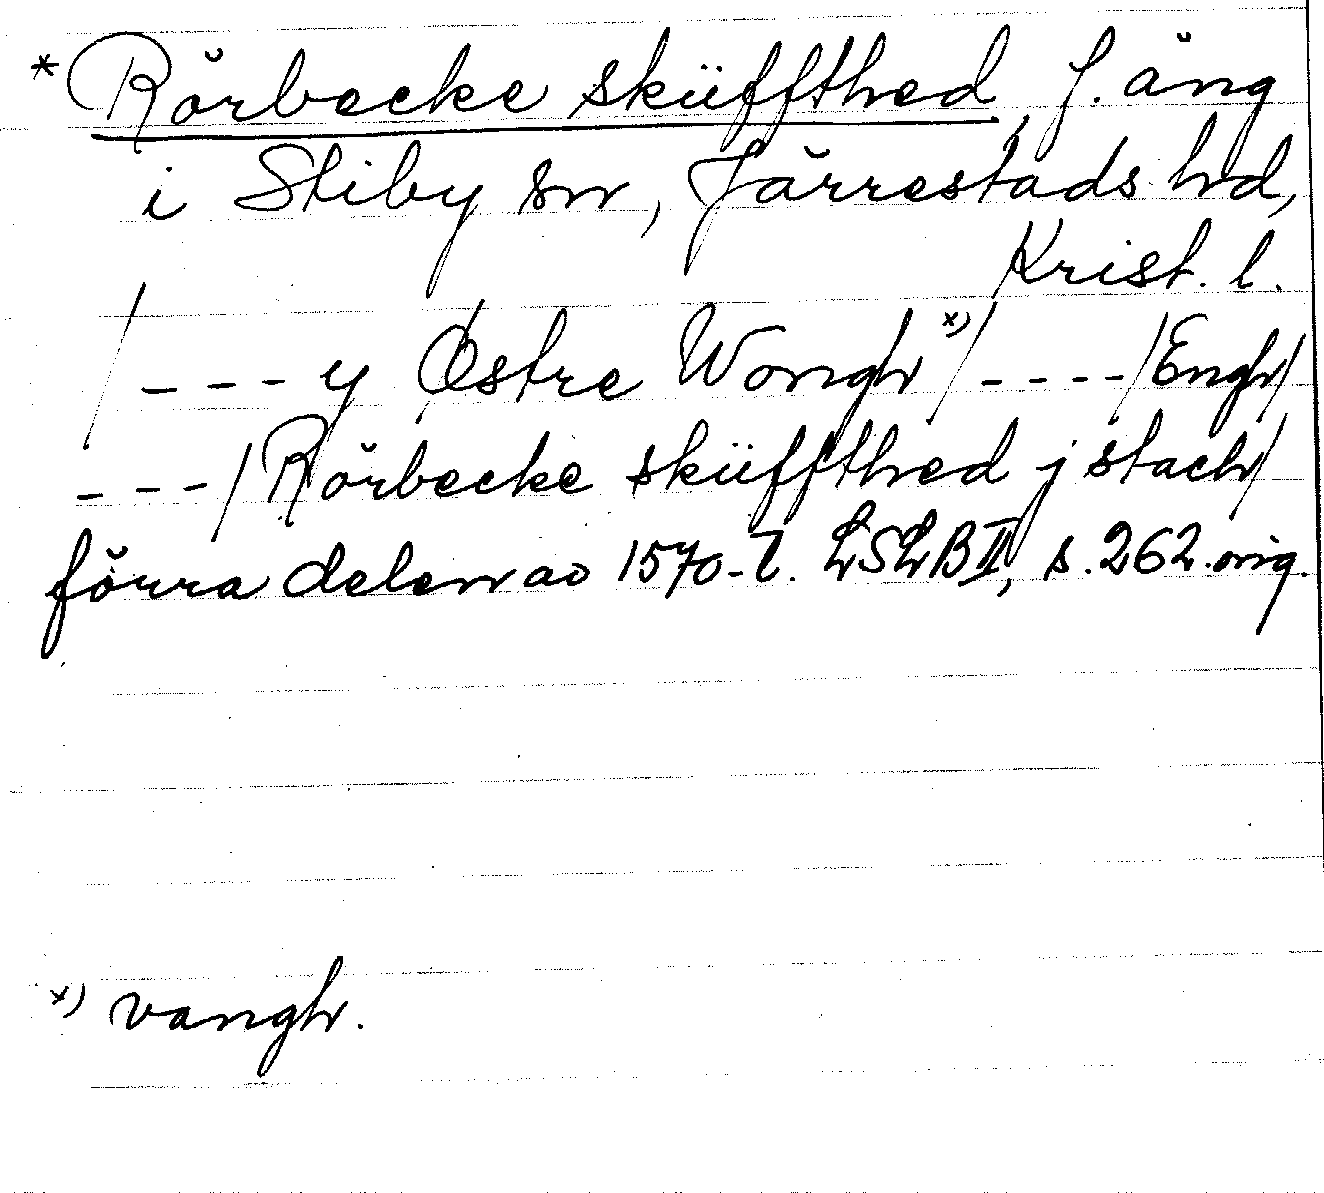 *Rörbecke sküffthed, f. äng
i Stiby sn, Järrestads hd,
Krist. l.
/---y Østre Wongh x)/----/Engh/
---/Rörbecke sküffthed j stach/
förra delen av 1570-t. LSLB II, s. 262. orig.
x) vangh.